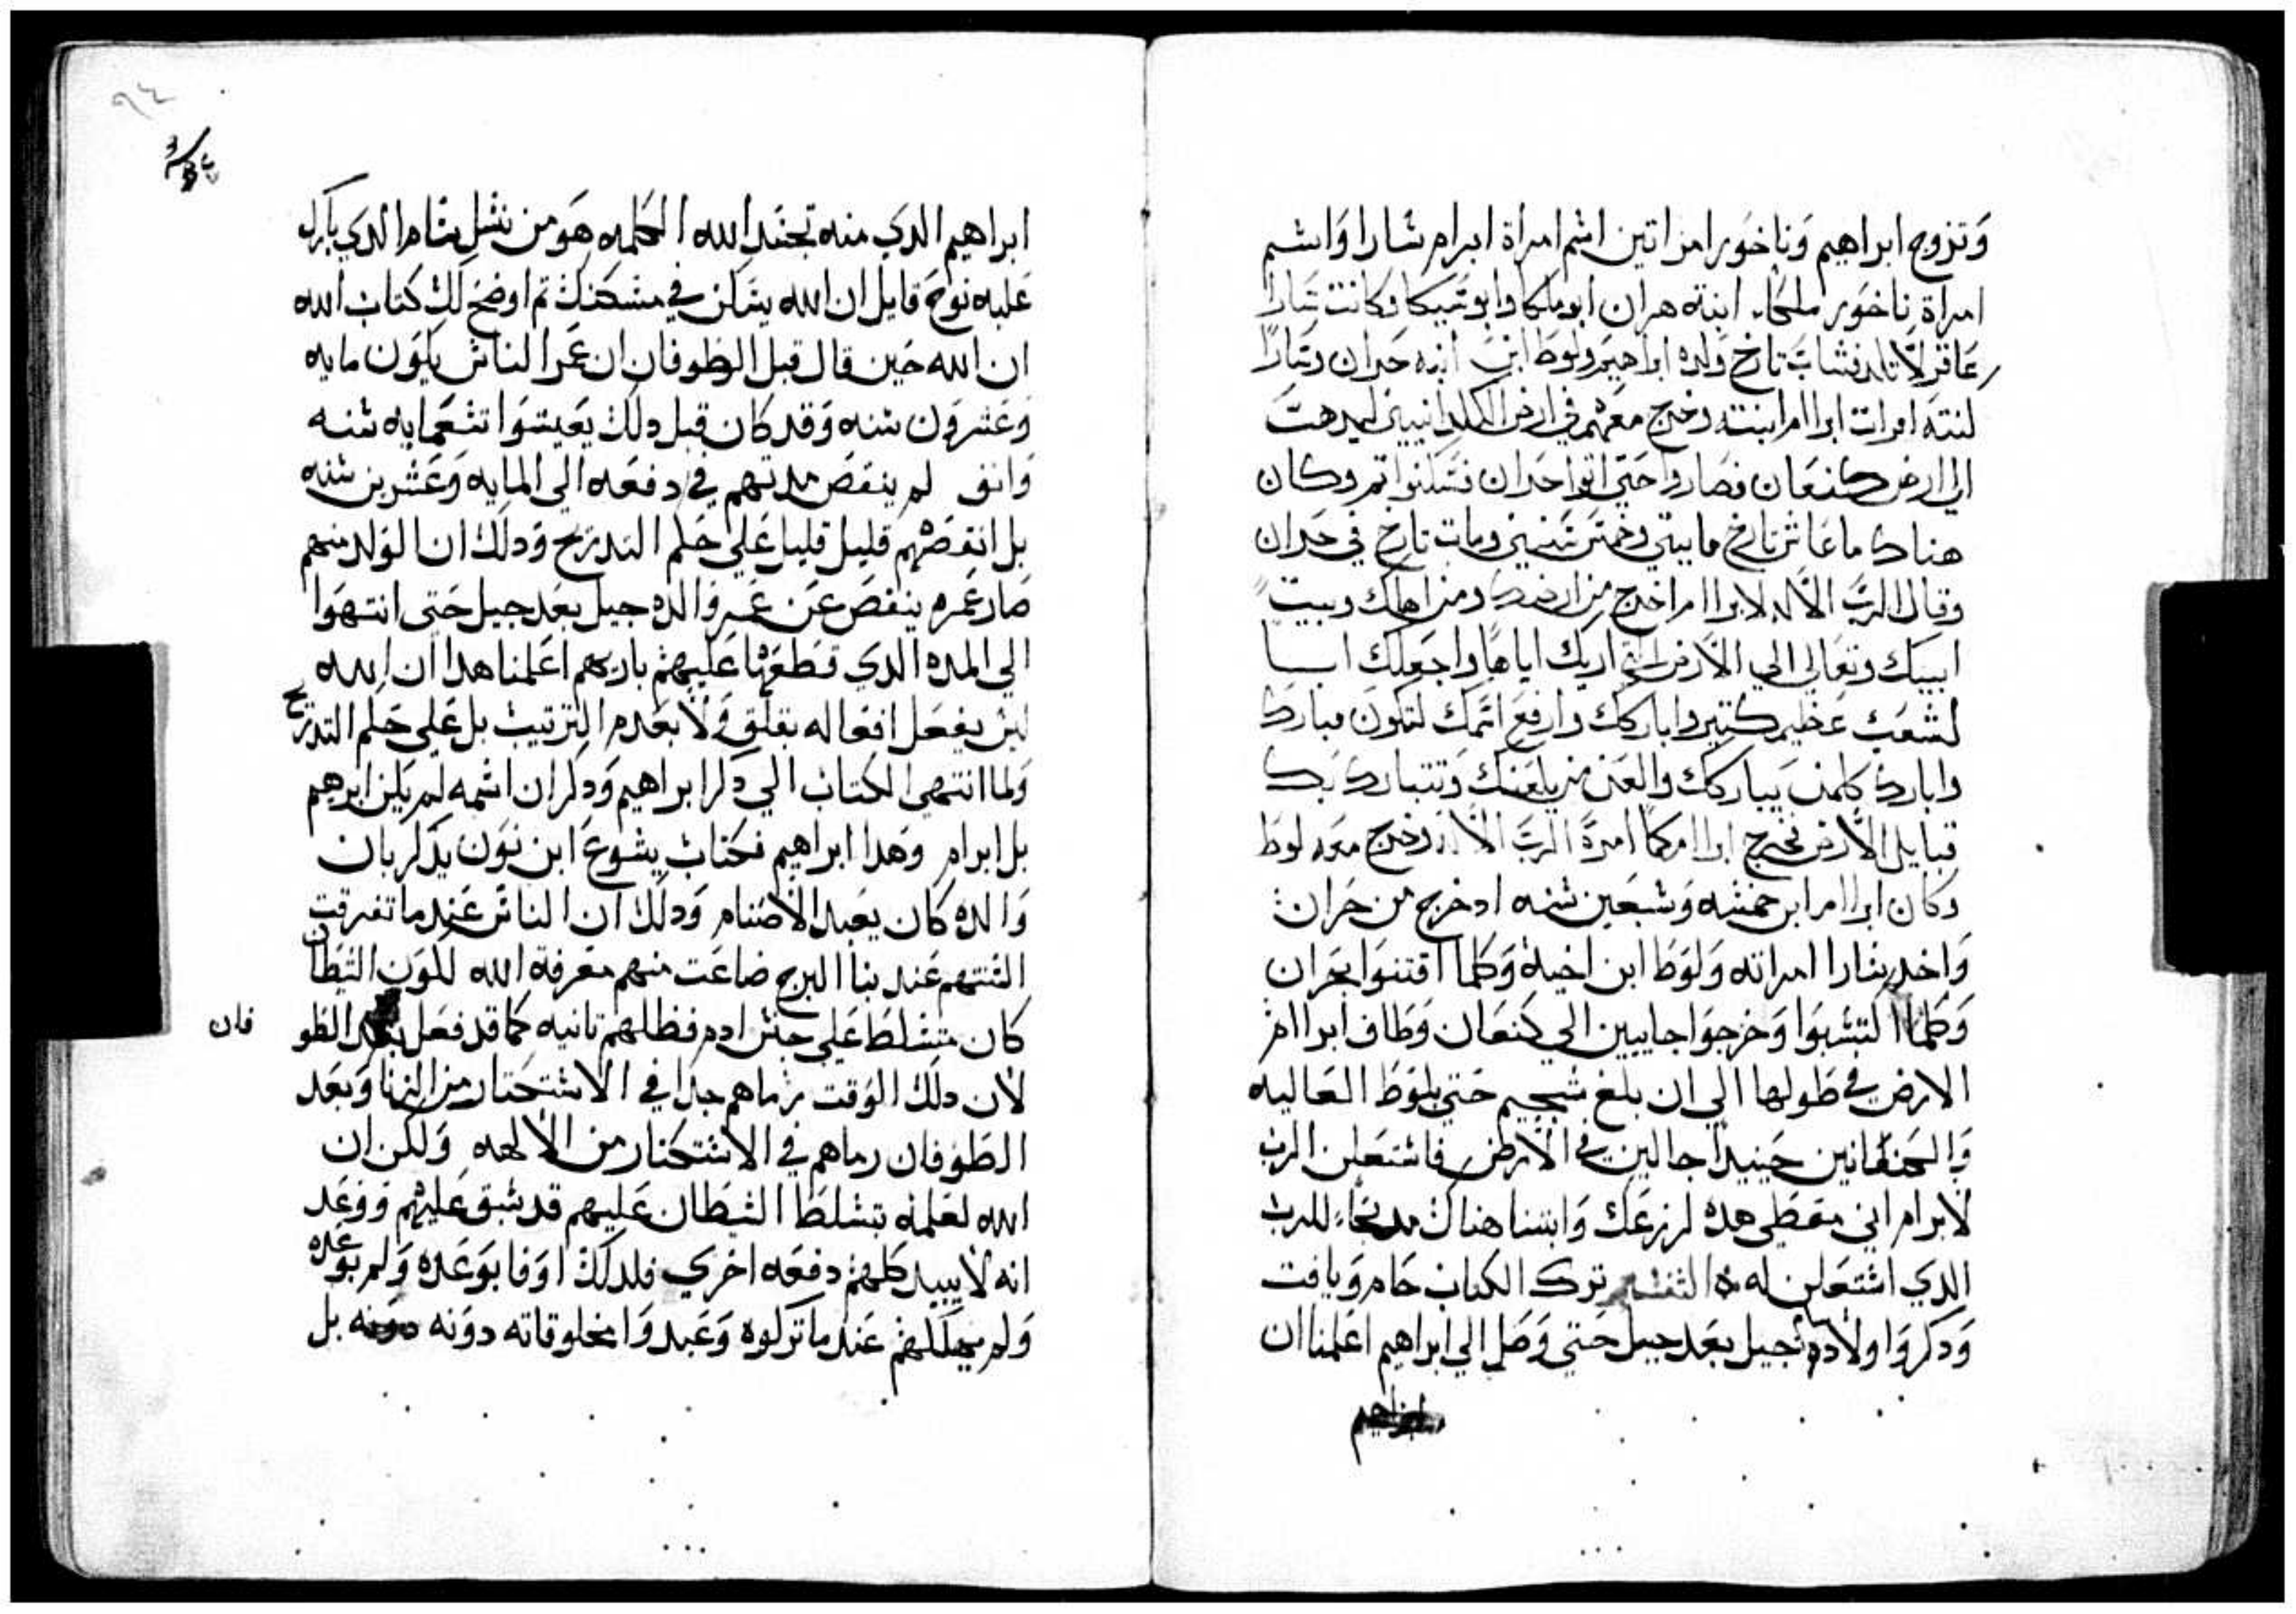 وتزوج ابراهيم وناخور امراتين اشم امراة ابرام شارا واشم
امراة ناخور ملكا. ابنته هران ابو ملكا وابو شيكا وكانت شارا
عاقر لا تلد فشاب تارخ ولده ابراهيم ولوط ابن ابنه حران وشارا
لنته امرات ابراام ابنته وخرج معهم في ارض الكلدانيين ليدهت
الي ارض كنعان فصاروا حتي اتوا حران فشكنوا تم وكان
هناك ما عاش تارخ مايتي وخمش شنين ومات تارخ في حران
وقال الرب الاله لابراام اخرج من ارضك ومن اهلك وبيت
ابيك وتعالي الي الارض التي اريك اياها واجعلك ابـا
لشعب عظيم كتير واباركك وارفع اشمك لتكون مبارك
وابارك كلمن يباركك والعن من يلعنك وتتبارك بك
قبايل الارض فخرج ابراام كما امرة الرب الاله وخرج معه لوط
وكان ابراام ابن خمشه وشبعين شنه اد خرج من حران
واخد شارا امراته ولوط ابن اخية وكلما اقتنوا بحران
وكلما التشبوا وخرجوا جايين الي كنعان وطاف ابراام
الارض في طولها الي ان بلغ شجيم حتي بلوط العاليه
والكنعانين حينيدا جالين في الارض فاشتعلن الرب
لابرام اني معطي هده لزرعك وابتنا هناك مدبحا للرب
الدي اشتعلن له التفشير ترك الكتاب حام ويافت
ودكر اولاده جيل بعد جيل حتي وصل الي ابراهيم اعلمنا ان
ابراهيم
٩٤
ابراهيم الدي منه تجشد الله الكلمه هو من نشل شام الدي بارك
عليه نوح قايل ان الله يشكن في مشكنك تم اوضح لك كتاب الله
ان الله حين قال قبل الطوفان ان عمر الناش يكون مايه
وعشرون شنه وقد كان قبل دلك يعيشوا تشعمايه شنه
وانق لم ينقص مدتهم في دفعه الي المايه وعشرين شنه
بل انقصهم قليل قليل علي حكم التدريج ودلك ان الولد منهم
صار عمره ينقص عن عمر والده جيل بعد جيل حتي انتهوا
الي المده الدي قطعها عليهم باريهم اعلمنا هدا ان الله
ليش يفعل افعاله بقلق ولا بعدم الترتيب بل علي حكم التدريج
ولما انتهي الكتاب الي دكر ابراهيم ودكر ان اشمه لم يكن ابرهيم
بل ابرام وهدا ابراهيم فكتاب يشوع ابن نون يدكر بان
والده كان يعبد الاصنام ودلك ان الناش عندما تفرقت
الشنتهم عند بنا البرج ضاعت منهم معرفة الله لكون الشيطان
كان متشلط علي جنش ادم فظلهم تانيه كما قد فعل بعد الطو
فان
لان دلك الوقت رماهم جدا في الاشتكتار من الزنا وبعد
الطوفان رماهم في الاشتكتار من الالهه ولكن ان
الله لعلمه بتشلط الشيطان عليهم قد شبق عليهم ووعد
انه لا يبيد كلهم دفعه اخري فلدلك اوفا بوعده ولم بوعده
ولم يهلكهم عندما تركوه وعبدوا مخلوقاته دونه بل